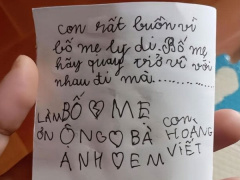 con rất buồn vì
bố mẹ ly dị. Bố mẹ
hãy quay trở về với
nhau đi mà.........
LÀM ƠN
BỐ ♡ MẸ
ÔNG ♡ BÀ
ANH ♡ EM
CON HOÀNG VIẾT